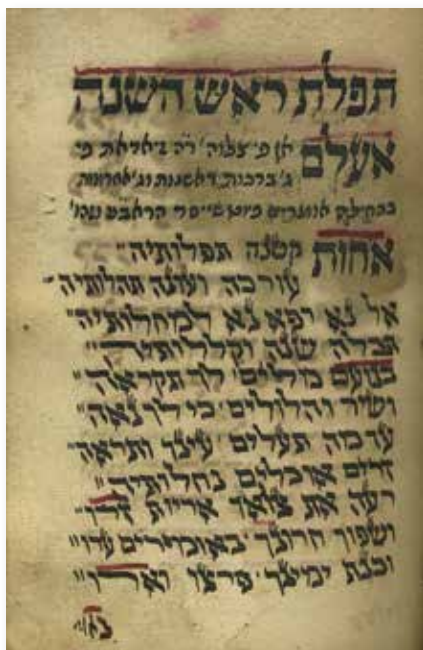 תפלת ראש השנה
אעלם אן פי צלוה ר'ה ז'יאדאת פי
ג' ברכות ראשונות וג' אחרונות
אומרים
אחות קטנה תפלותיה"
עורכה ועונה תהלותיה"
אל נא רפא נא למחלותיה"
תכלה שנה וקללותיה"
בנועם מלים' לך תקראה"
ושיר והלולים' כי לך נאה"
עד מה תעלים' עינך ותראה"
זרים אוכלים נחלותיה"
רעה את צאנך אריות זרו"
ושפוך חרונך' באומרים ערו"
וכנת ימינך' פרצו וארו"